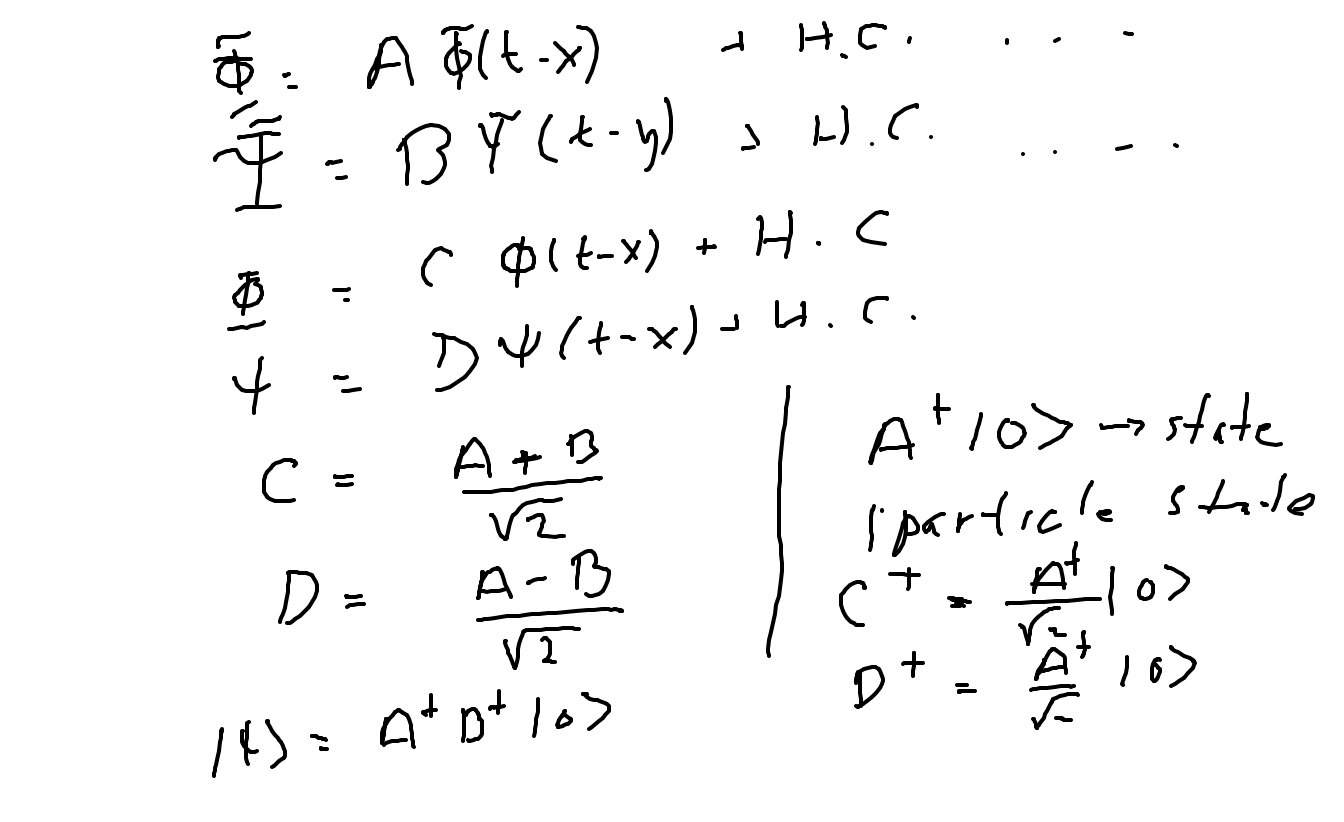 Φ̃ = A Φ̃(t-x) + H.C. . . -
Ψ̃ = B Ψ̃(t-y) + H.C. . . - .
Φ = C ϕ(t-x) + H.C
ψ = D ψ(t-x) + H.C.
C = (A + B)/√2
D = (A - B)/√2
A⁺|0> → state
1 particle state
C⁺ = A⁺/√2 |0>
D⁺ = A⁺/√- |0>
= A⁺ B⁺ |0>